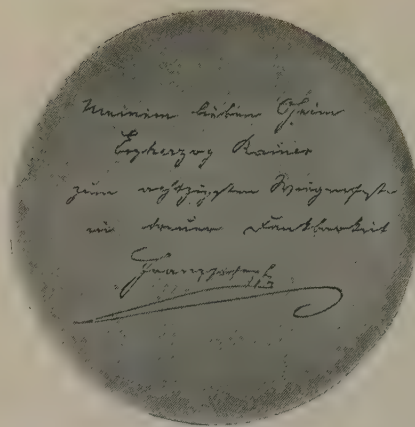 Meinem lieben Oheim
Erzherzog Rainer
zum achtzigsten Wiegenfeste
in treuer Dankbarkeit
Franz Joseph